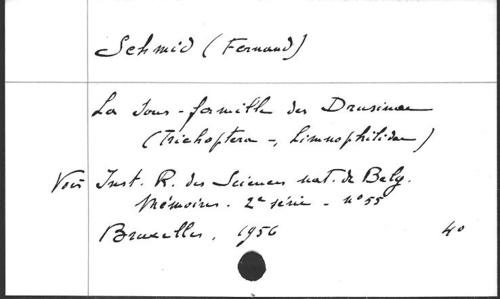 Schmid (Fernand)
La Sous-famille des Drusinae
(Trichoptera -, Limnophilidae)
Voir Inst. R. des Sciences nat. de Belg.
Mémoires. 2e série - n° 55
Bruxelles, 1956 4°